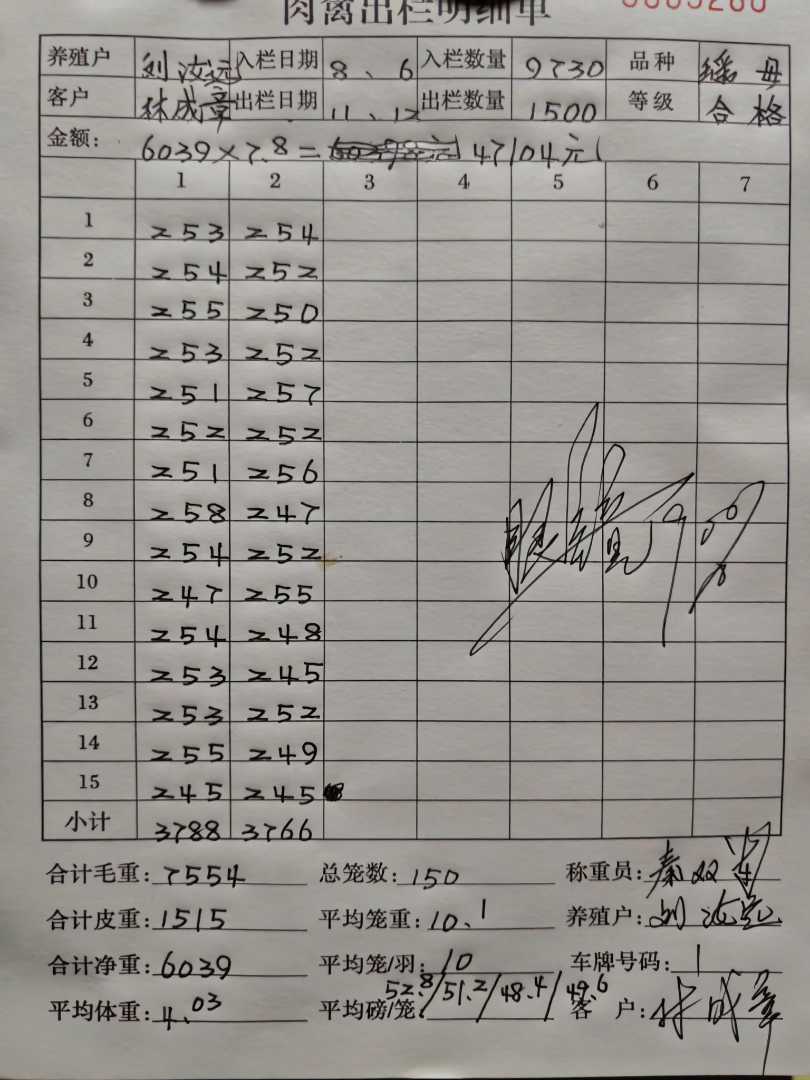 肉禽出栏明细单
养殖户 刘汝远 入栏日期 8、6 入栏数量 9730 品种 瑶母
客户 林成章 出栏日期 11、12 出栏数量 1500 等级 合格
金额: 6039×7.8= 47104元
1 2 3 4 5 6 7
1 253 254
2 254 252
3 255 250
4 253 252
5 251 257
6 252 252
7 251 256
8 258 247
9 254 252
10 247 255
11 254 248
12 253 245
13 253 252
14 255 249
15 245 245
小计 3788 3766
合计毛重: 7554 总笼数: 150 称重员: 秦双
合计皮重: 1515 平均笼重: 10.1 养殖户: 刘汝远
合计净重: 6039 平均笼/羽: 10 车牌号码: 1
平均体重: 4.03 平均磅/笼: 52.8/51.2/48.4/49.6 客户: 林成章